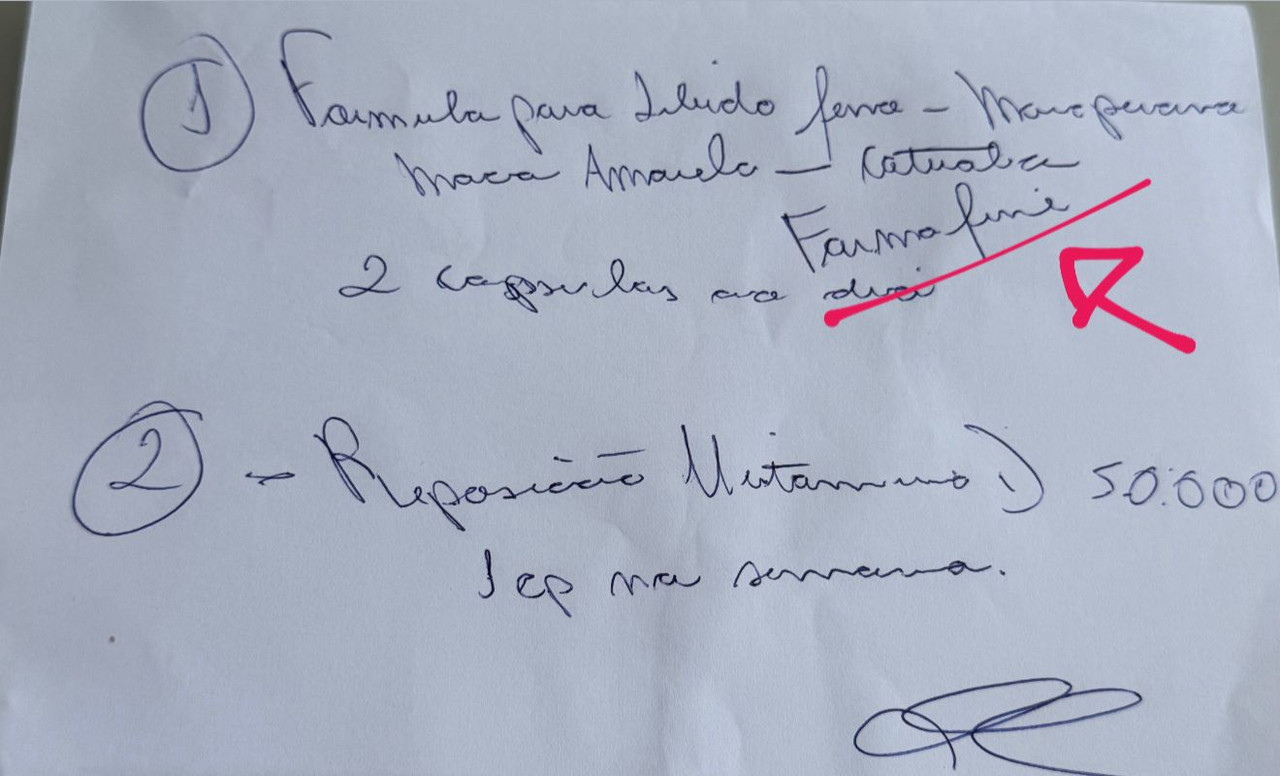 1 Formula para Libido fema - Maca peruana
Maca Amarela - Catuaba
Farmafine
2 capsulas ao dia
2 - Reposição Vitamina D 50.000
1 cp na semana.